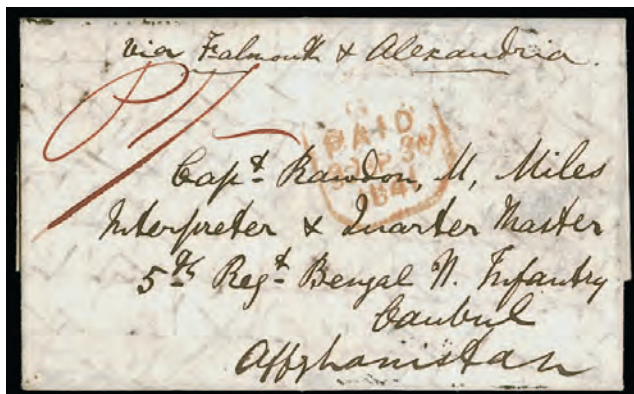 via Falmouth & Alexandria.
P 1/-
PAID
30 SP 30
184
Capt. Rawdon, M, Miles
Interpreter & Quarter Master
5th Regt. Bengal N. Infantry
Caubul
Affghanistan